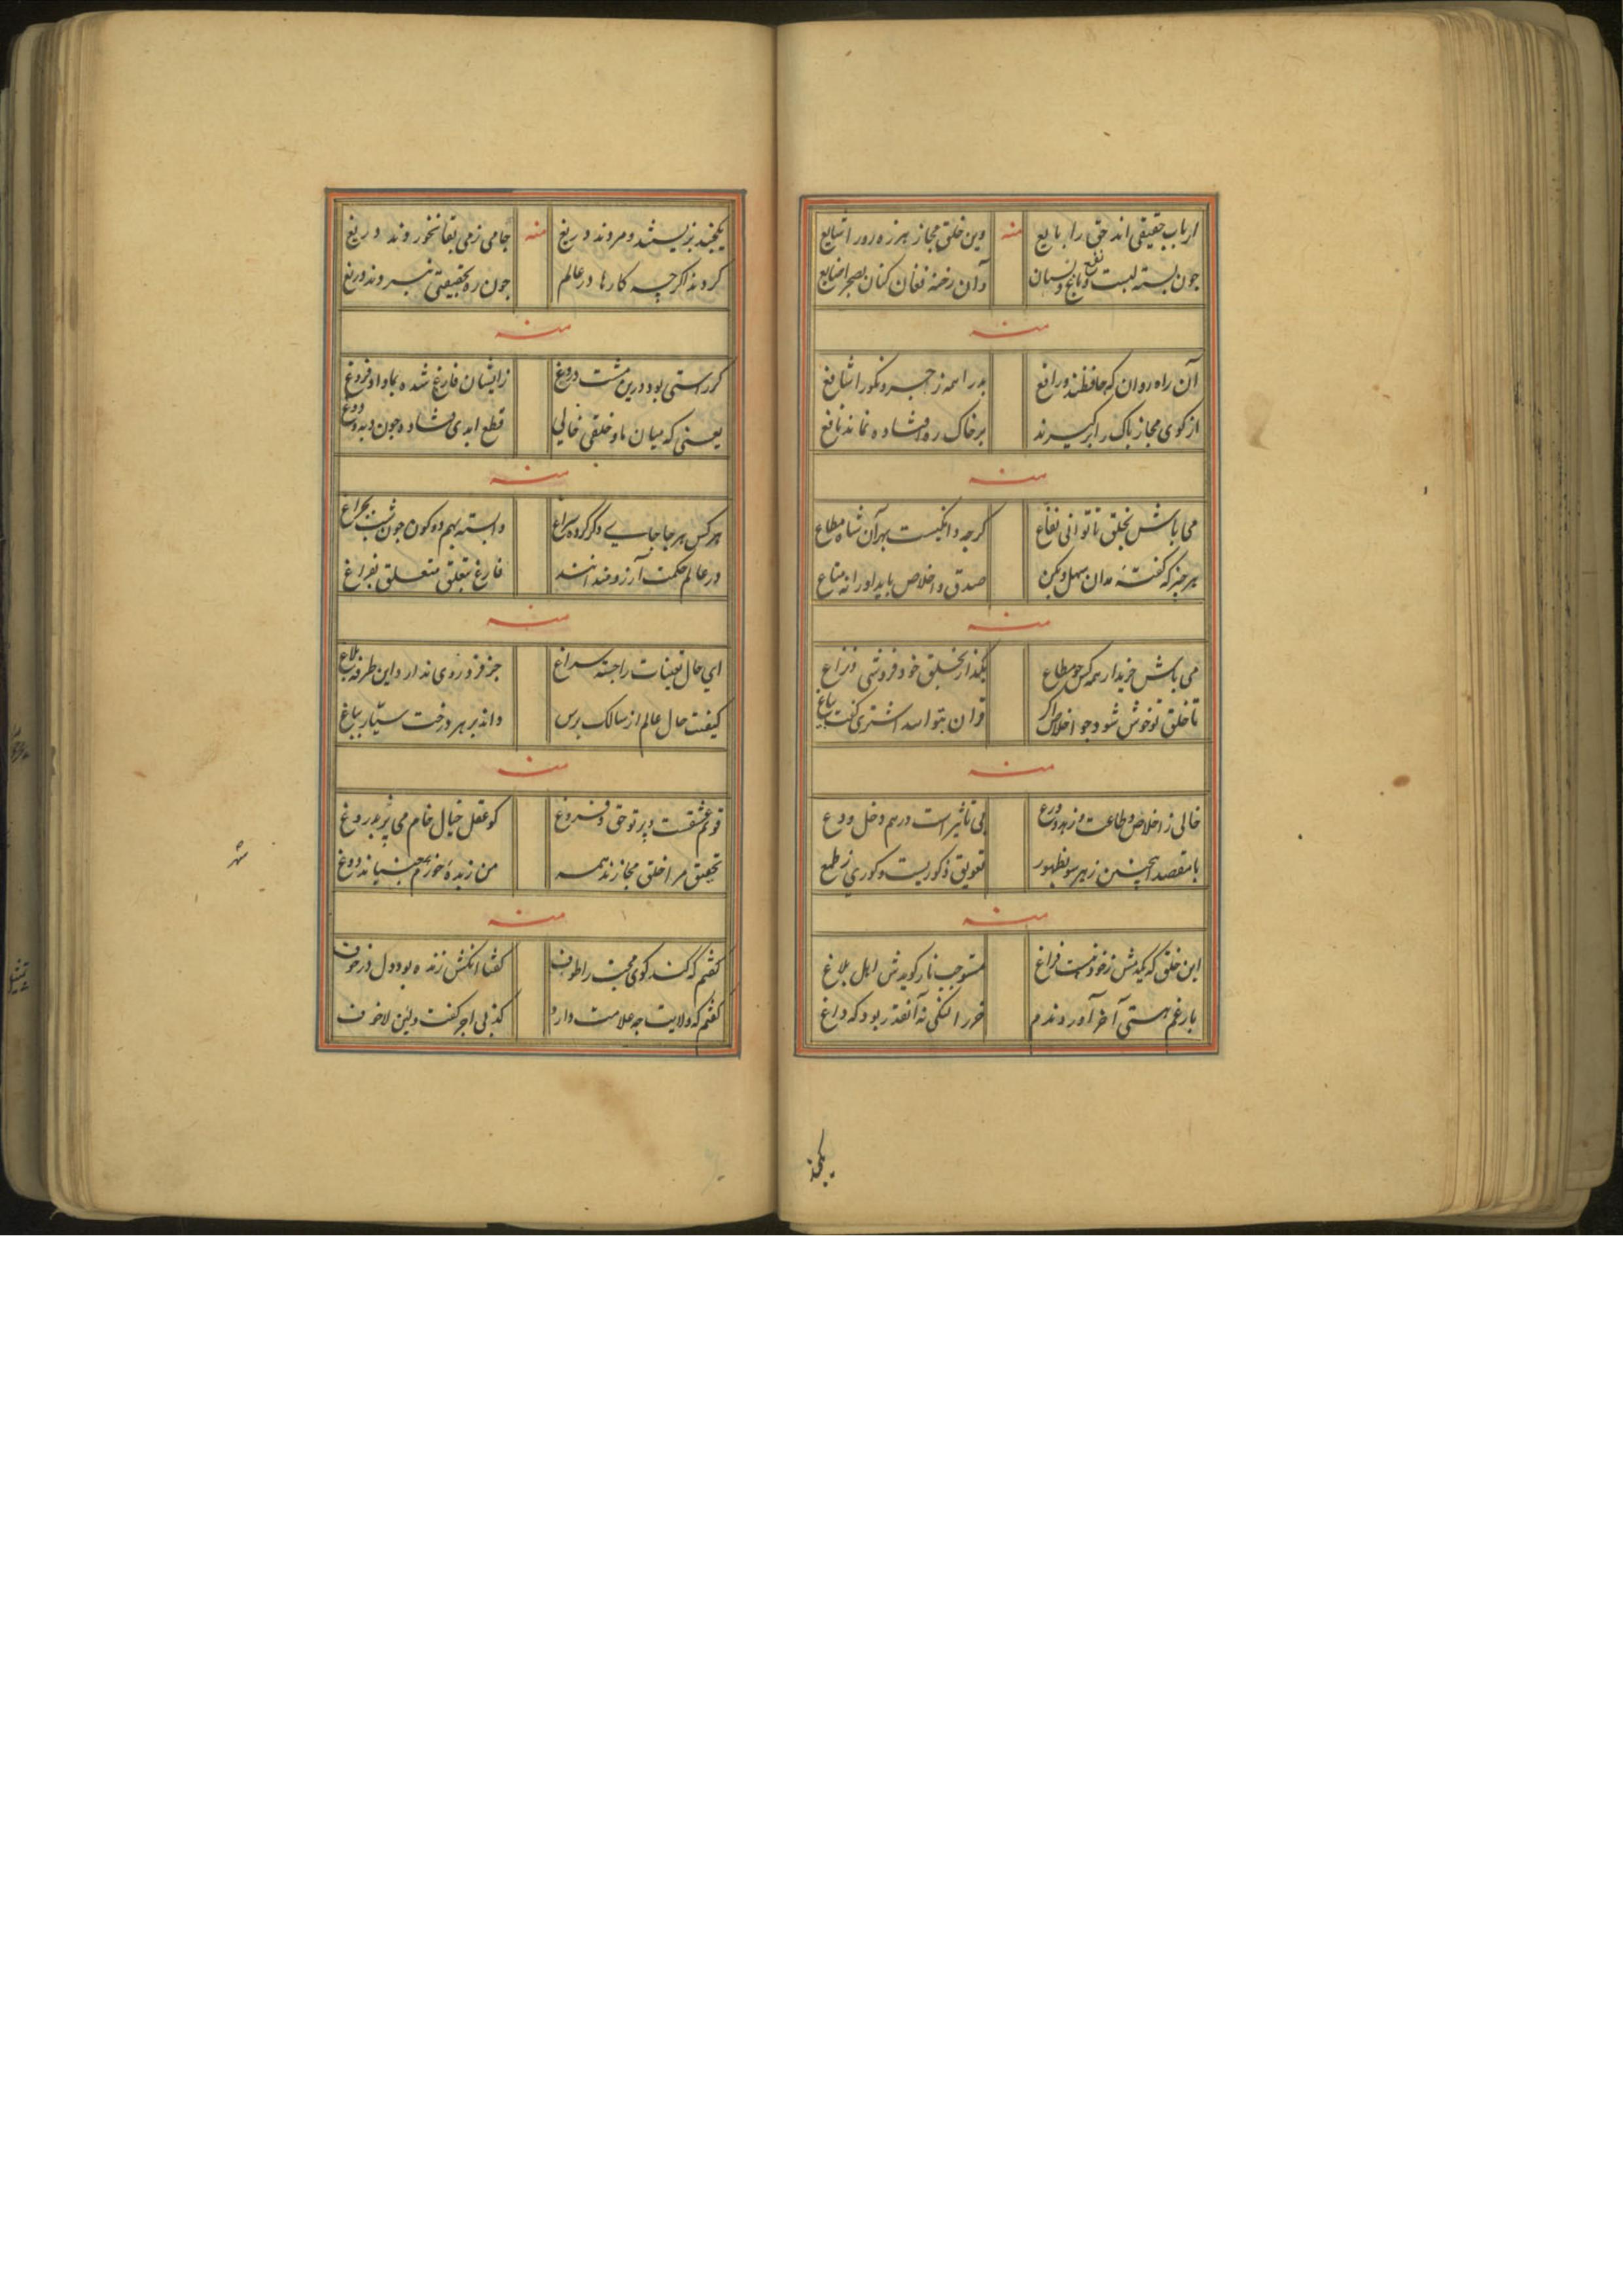 ارباب حقیقی اند حق را بایع
منه
وین خلق مجاز هرزه رو را شایع
چون بسته لبست و
دان رخنه فغان کنان بصحرا ضایع
منه
آن راه روان که حافظند و رافع
بد را همه زجر و نکو را شافع
از کوی مجاز پاک را برگیرند
بر خاک ره افتاده نماند نافع
منه
می باش بخلق تا توانی نفاع
گرچه و انگیست بهر آن شاه مطاع
هر چیز که گفتهٔ مدان سهل و بکن
صدق و اخلاص باید او را نه متاع
منه
می باش خریدار همه کس چو مطاع
بگذار بخلق خود فروشی و نزاع
تا خلق تو خوش شود چو اخلاص اگر
قرآن بتو الله اشتری گفت
منه
خالی ز اخلاص و طاعت و زهد و ورع
بی تاثیر است درهم و دخل و ودع
با مقصد این چنین ز هر سو بظهور
تعویق ذکوریست و کوری ز طمع
منه
این خلق که یکدمش ز خود نیست فراغ
مستوجب نار گویدش اهل بلاغ
بار غم هستی آخر آوردندم
خر را لنگی نه آنقدر بود که داغ
یکچند
یکچند بزیستند و مردند دریغ
منه
جامی ز می بقا نخوردند دریغ
کردند اگرچه کارها در عالم
چون ره بحقیقتی نبردند دریغ
منه
گر راستی بود درین مشت دروغ
زایشان فارغ شده بما داد فروغ
یعنی که میان ما و خلقی خالی
قطع ابدی فتاده چون دیده و دوغ
منه
هر کس هر جا جایی دگر کرده سراغ
وابسته بهم دو کون چون شب بچراغ
در عالم حکمت آرزومندانند
فارغ بتعلق متعلق بفراغ
منه
ای حال تعینات را جسته سراغ
جز فرد روی ندارد این طرفه بلاغ
کیفیت حال عالم از سالک پرس
داند بر هر درخت سیار بباغ
منه
قولم عشقست و پرتو حق و فروغ
کو عقل خیال خام می پز بدروغ
تحقیق مرا خلق مجازند همه
من زبده خورم بجنبیاند دوغ
منه
گفتم که کند کوی محبت را طوف
گفتا آنکش زنده بود دل در خوف
گفتم که ولایت چه علامت دارد